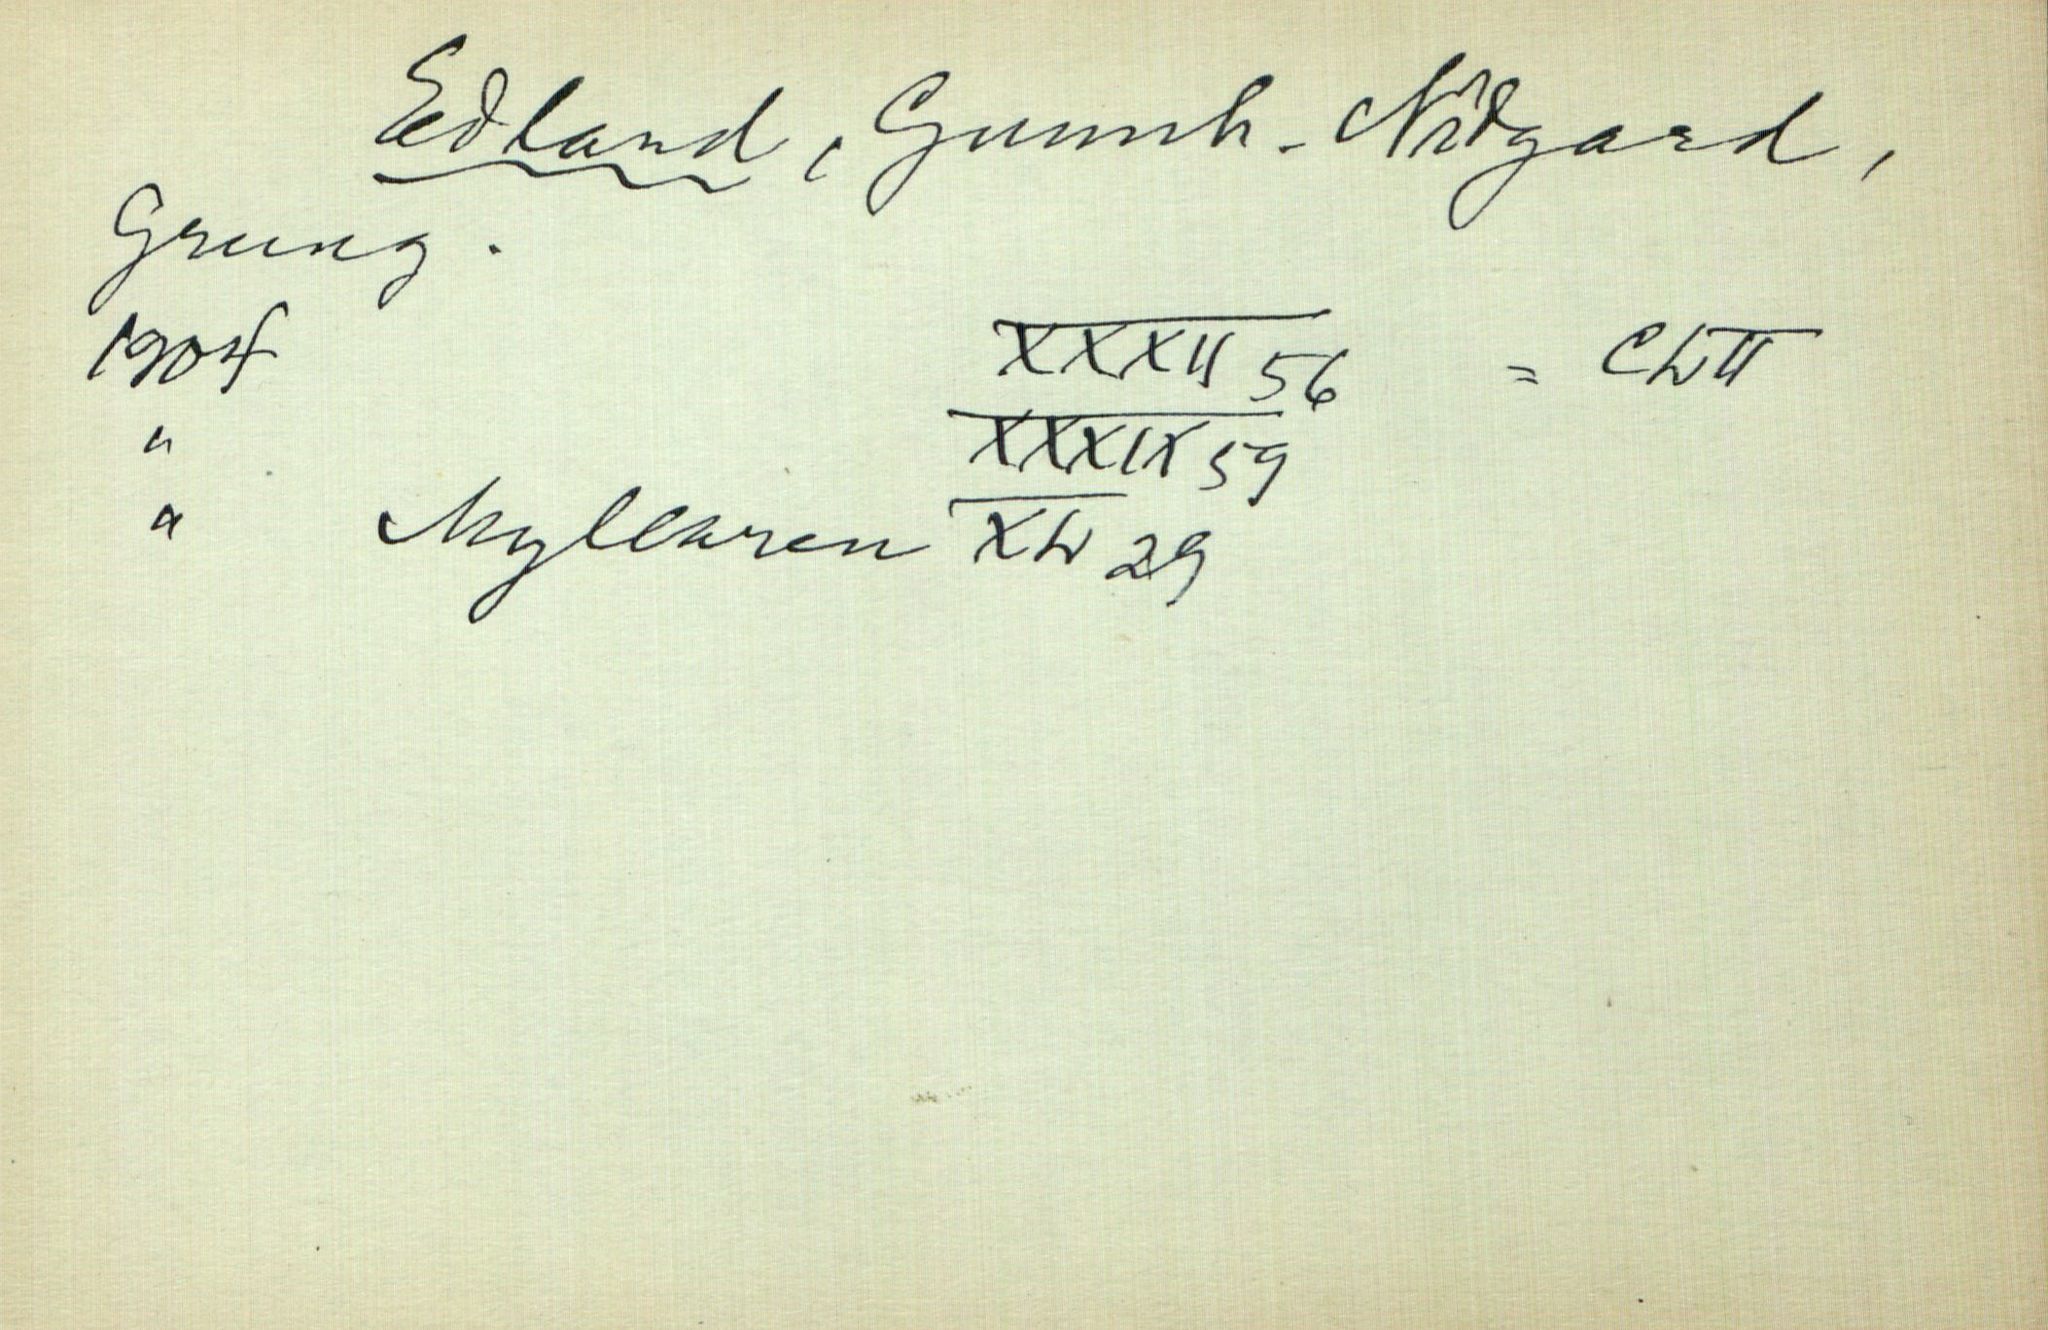 Edland, Gunnh. Nórdgard,
Grung.
1904 XXXII 56 = CLII
" XXXIX 59
" Myllaren XL 29